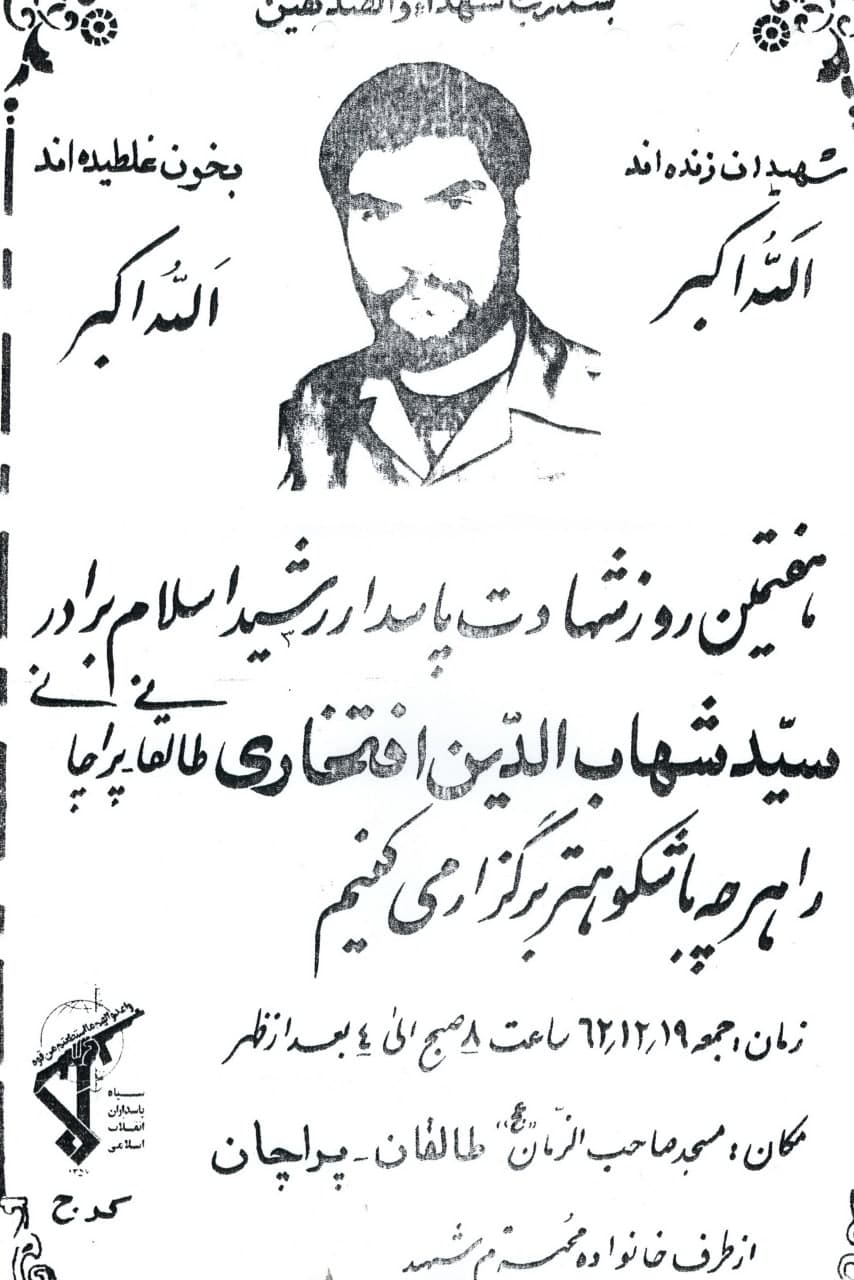 بسم رب الشهداء و الصدیقین
شهیدان زنده اند
اَللهُ اکبر
بخون غلطیده اند
اَللهُ اکبر
هفتمین روز شهادت پاسدار رشید اسلام برادر
سیّد شهاب الدّین افتخاری طالقانی پراچانی
را هر چه باشکوهتر برگزار می کنیم
زمان: جمعه ۶۲٫۱۲٫۱۹ ساعت ۸ صبح الیٰ ٤ بعد از ظهر
مکان: مسجد صاحب الزّمان "عج" طالقان - پراچان
از طرف خانواده محترم شهید
سپاه
پاسداران
انقلاب
اسلامی